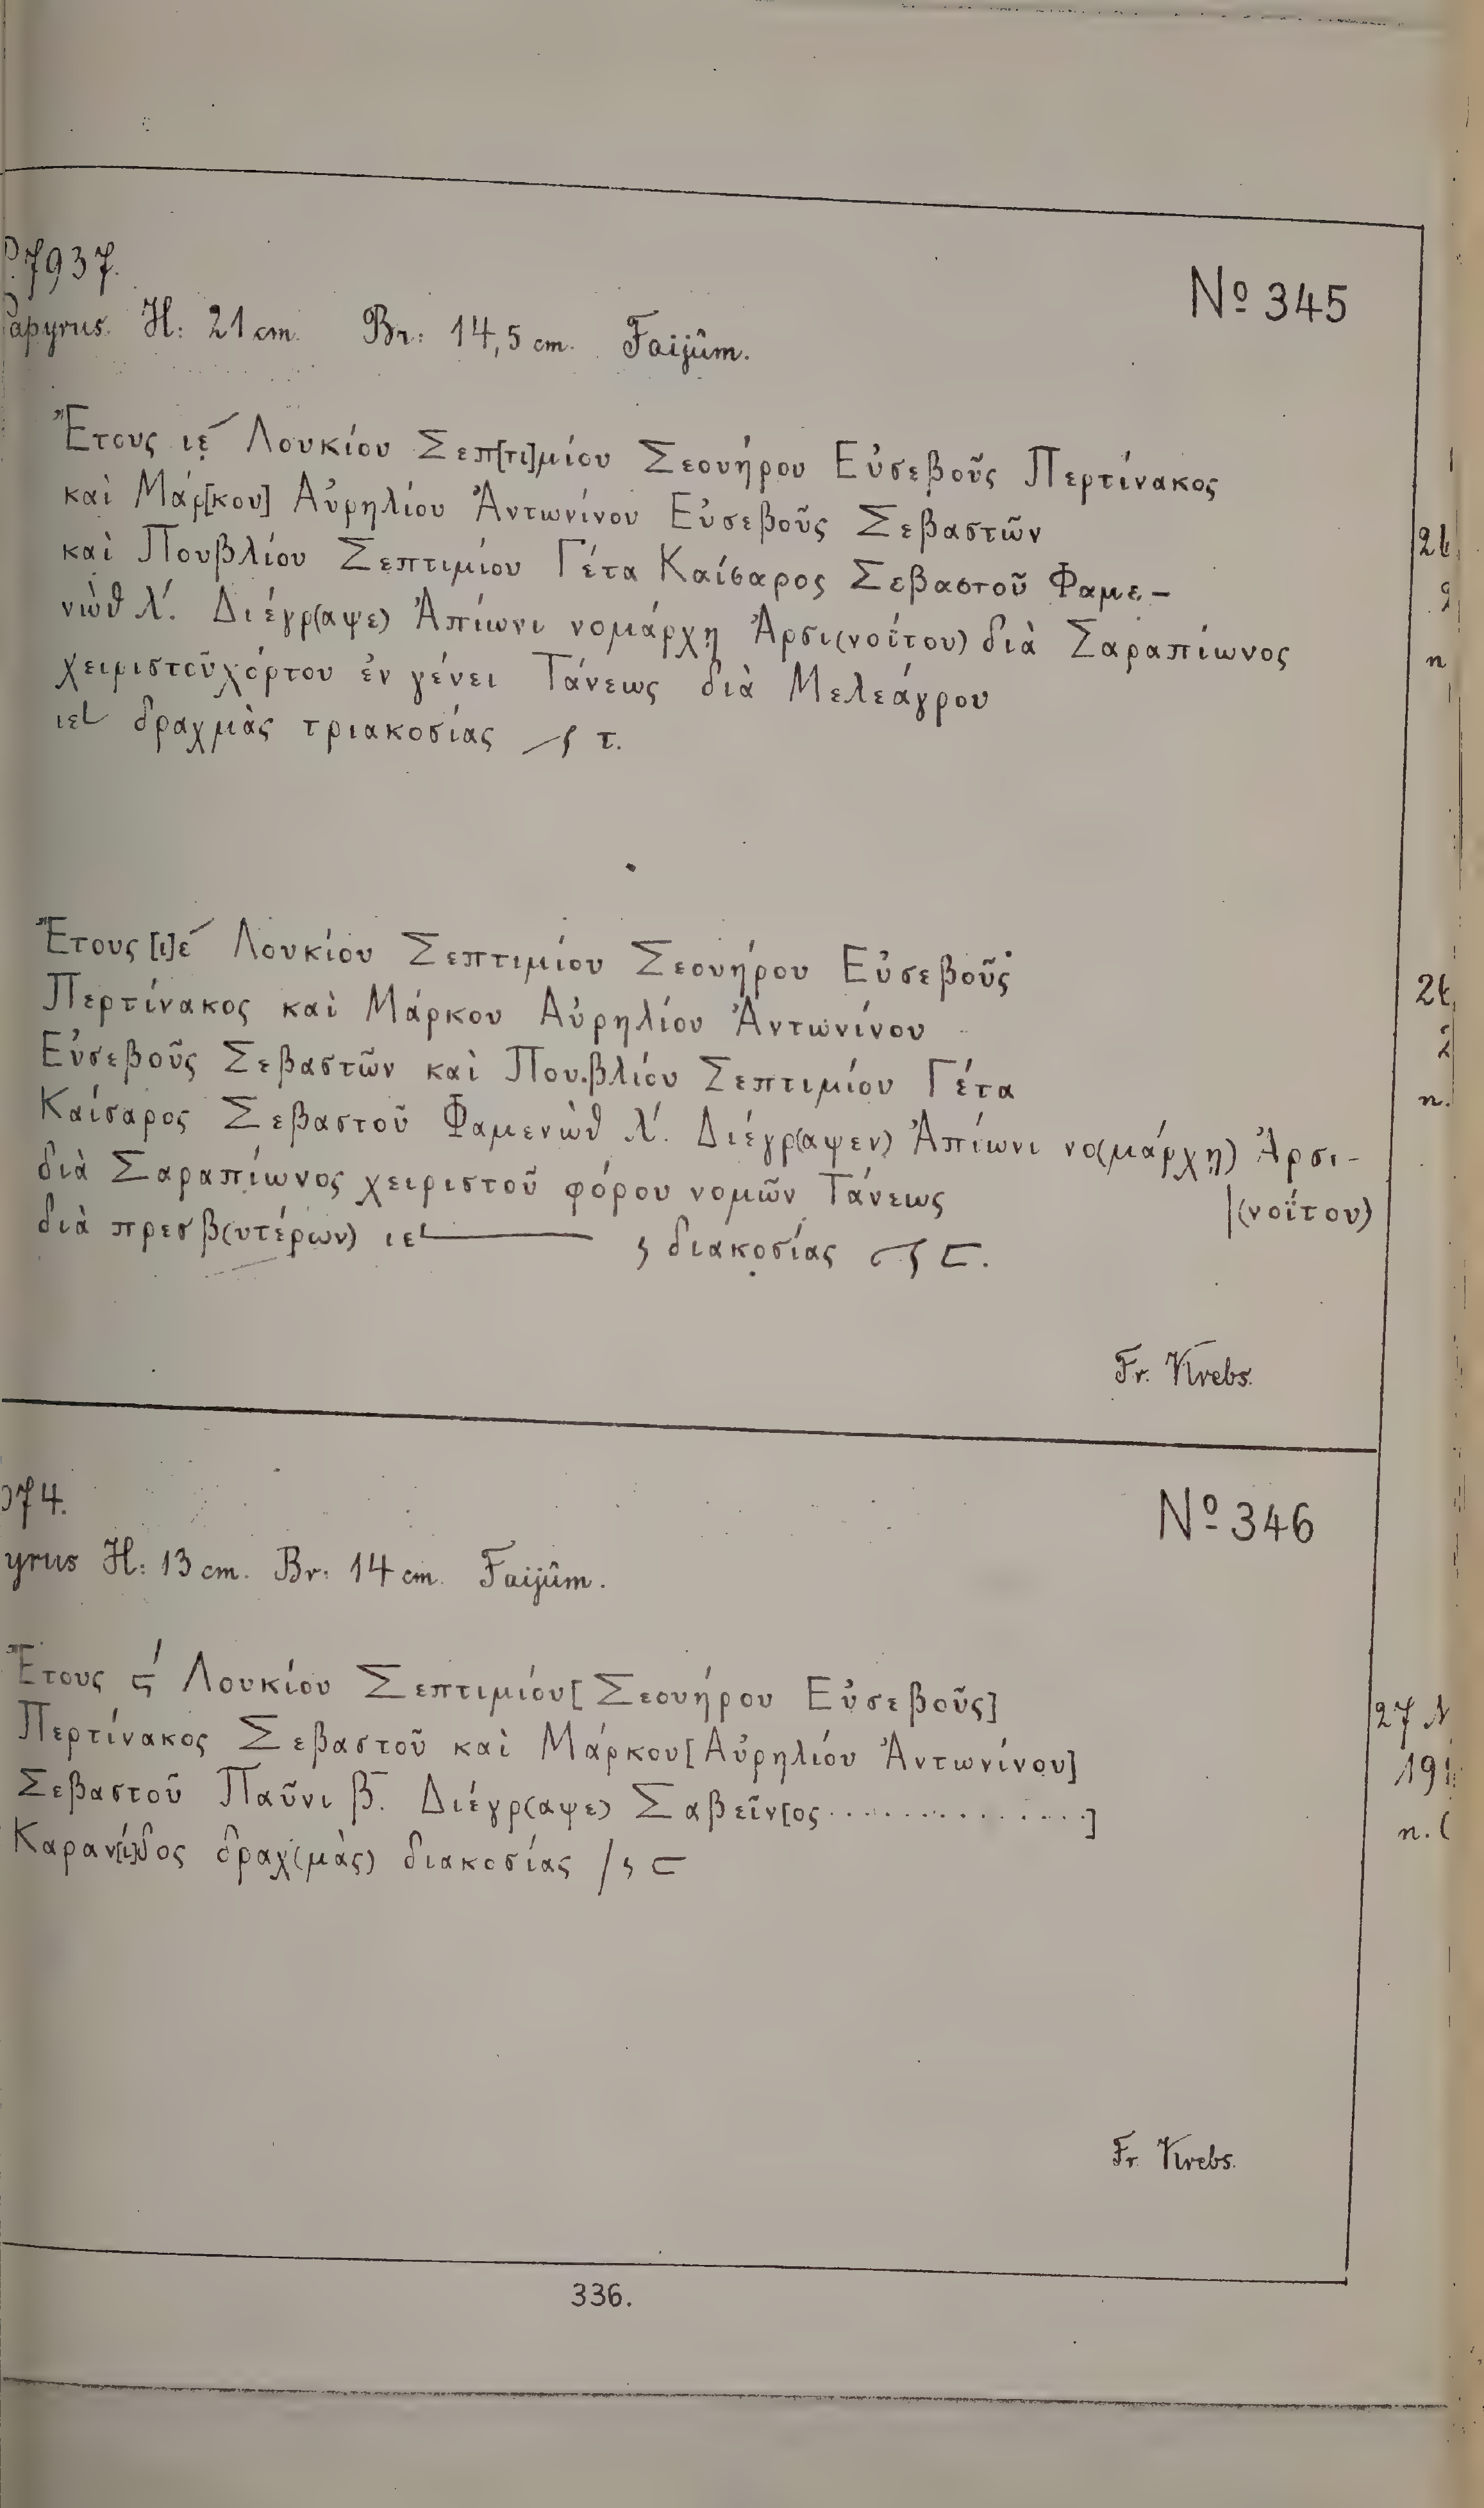 P. 7937.
№ 345
Papyrus. H: 21 cm. Br: 14,5 cm. Faijûm.
Ἔτους ιε´ Λουκίου Σεπ[τι]μίου Σεουήρου Εὐσεβοῦς Περτίνακος
καὶ Μάρ[κου] Αὐρηλίου Ἀντωνίνου Εὐσεβοῦς Σεβαστῶν
καὶ Πουβλίου Σεπτιμίου Γέτα Καίσαρος Σεβαστοῦ Φαμε-
νὼθ λ´. Διέγρ(αψε) Ἀπίωνι νομάρχῃ Ἀρσι(νοΐτου) διὰ Σαραπίωνος
χειριστοῦ χόρτου ἐν γένει Τάνεως διὰ Μελεάγρου
ιε└ δραχμὰς τριακοσίας τ.
Ἔτους [ι]ε´ Λουκίου Σεπτιμίου Σεουήρου Εὐσεβοῦς
Περτίνακος καὶ Μάρκου Αὐρηλίου Ἀντωνίνου
Εὐσεβοῦς Σεβαστῶν καὶ Πουβλίου Σεπτιμίου Γέτα
Καίσαρος Σεβαστοῦ Φαμενὼθ λ´. Διέγρ(αψεν) Ἀπίωνι νο(μάρχῃ) Ἀρσι-
|(νοΐτου)
διὰ Σαραπίωνος χειριστοῦ φόρου νομῶν Τάνεως
διὰ πρεσβ(υτέρων) ιε└ διακοσίας
Fr. Krebs.
074.
№ 346
yrus H: 13 cm. Br: 14 cm. Faijûm.
Ἔτους ϛ´ Λουκίου Σεπτιμίου[Σεουήρου Εὐσεβοῦς]
Περτίνακος Σεβαστοῦ καὶ Μάρκου[Αὐρηλίου Ἀντωνίνου]
Σεβαστοῦ Παῦνι β̅. Διέγρ(αψε) Σαβεῖν[ος ...............]
Καραν[ί]δος δραχ(μὰς) διακοσίας
Fr. Krebs.
336.